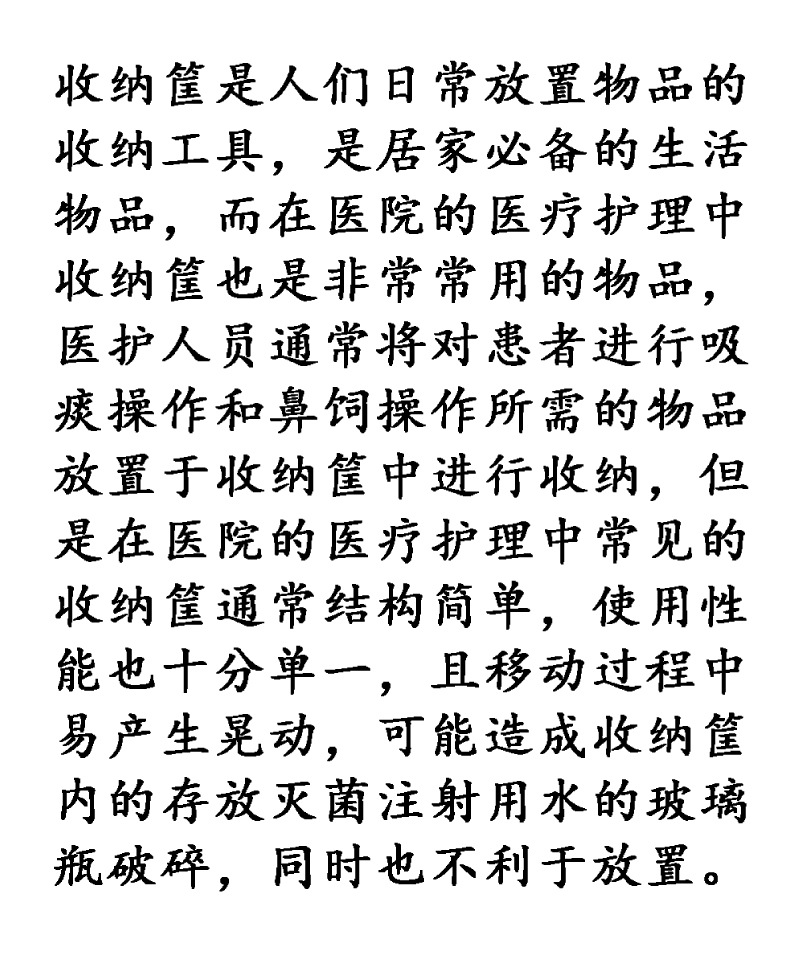 收纳筐是人们日常放置物品的
收纳工具，是居家必备的生活
物品，而在医院的医疗护理中
收纳筐也是非常常用的物品，
医护人员通常将对患者进行吸
痰操作和鼻饲操作所需的物品
放置于收纳筐中进行收纳，但
是在医院的医疗护理中常见的
收纳筐通常结构简单，使用性
能也十分单一，且移动过程中
易产生晃动，可能造成收纳筐
内的存放灭菌注射用水的玻璃
瓶破碎，同时也不利于放置。